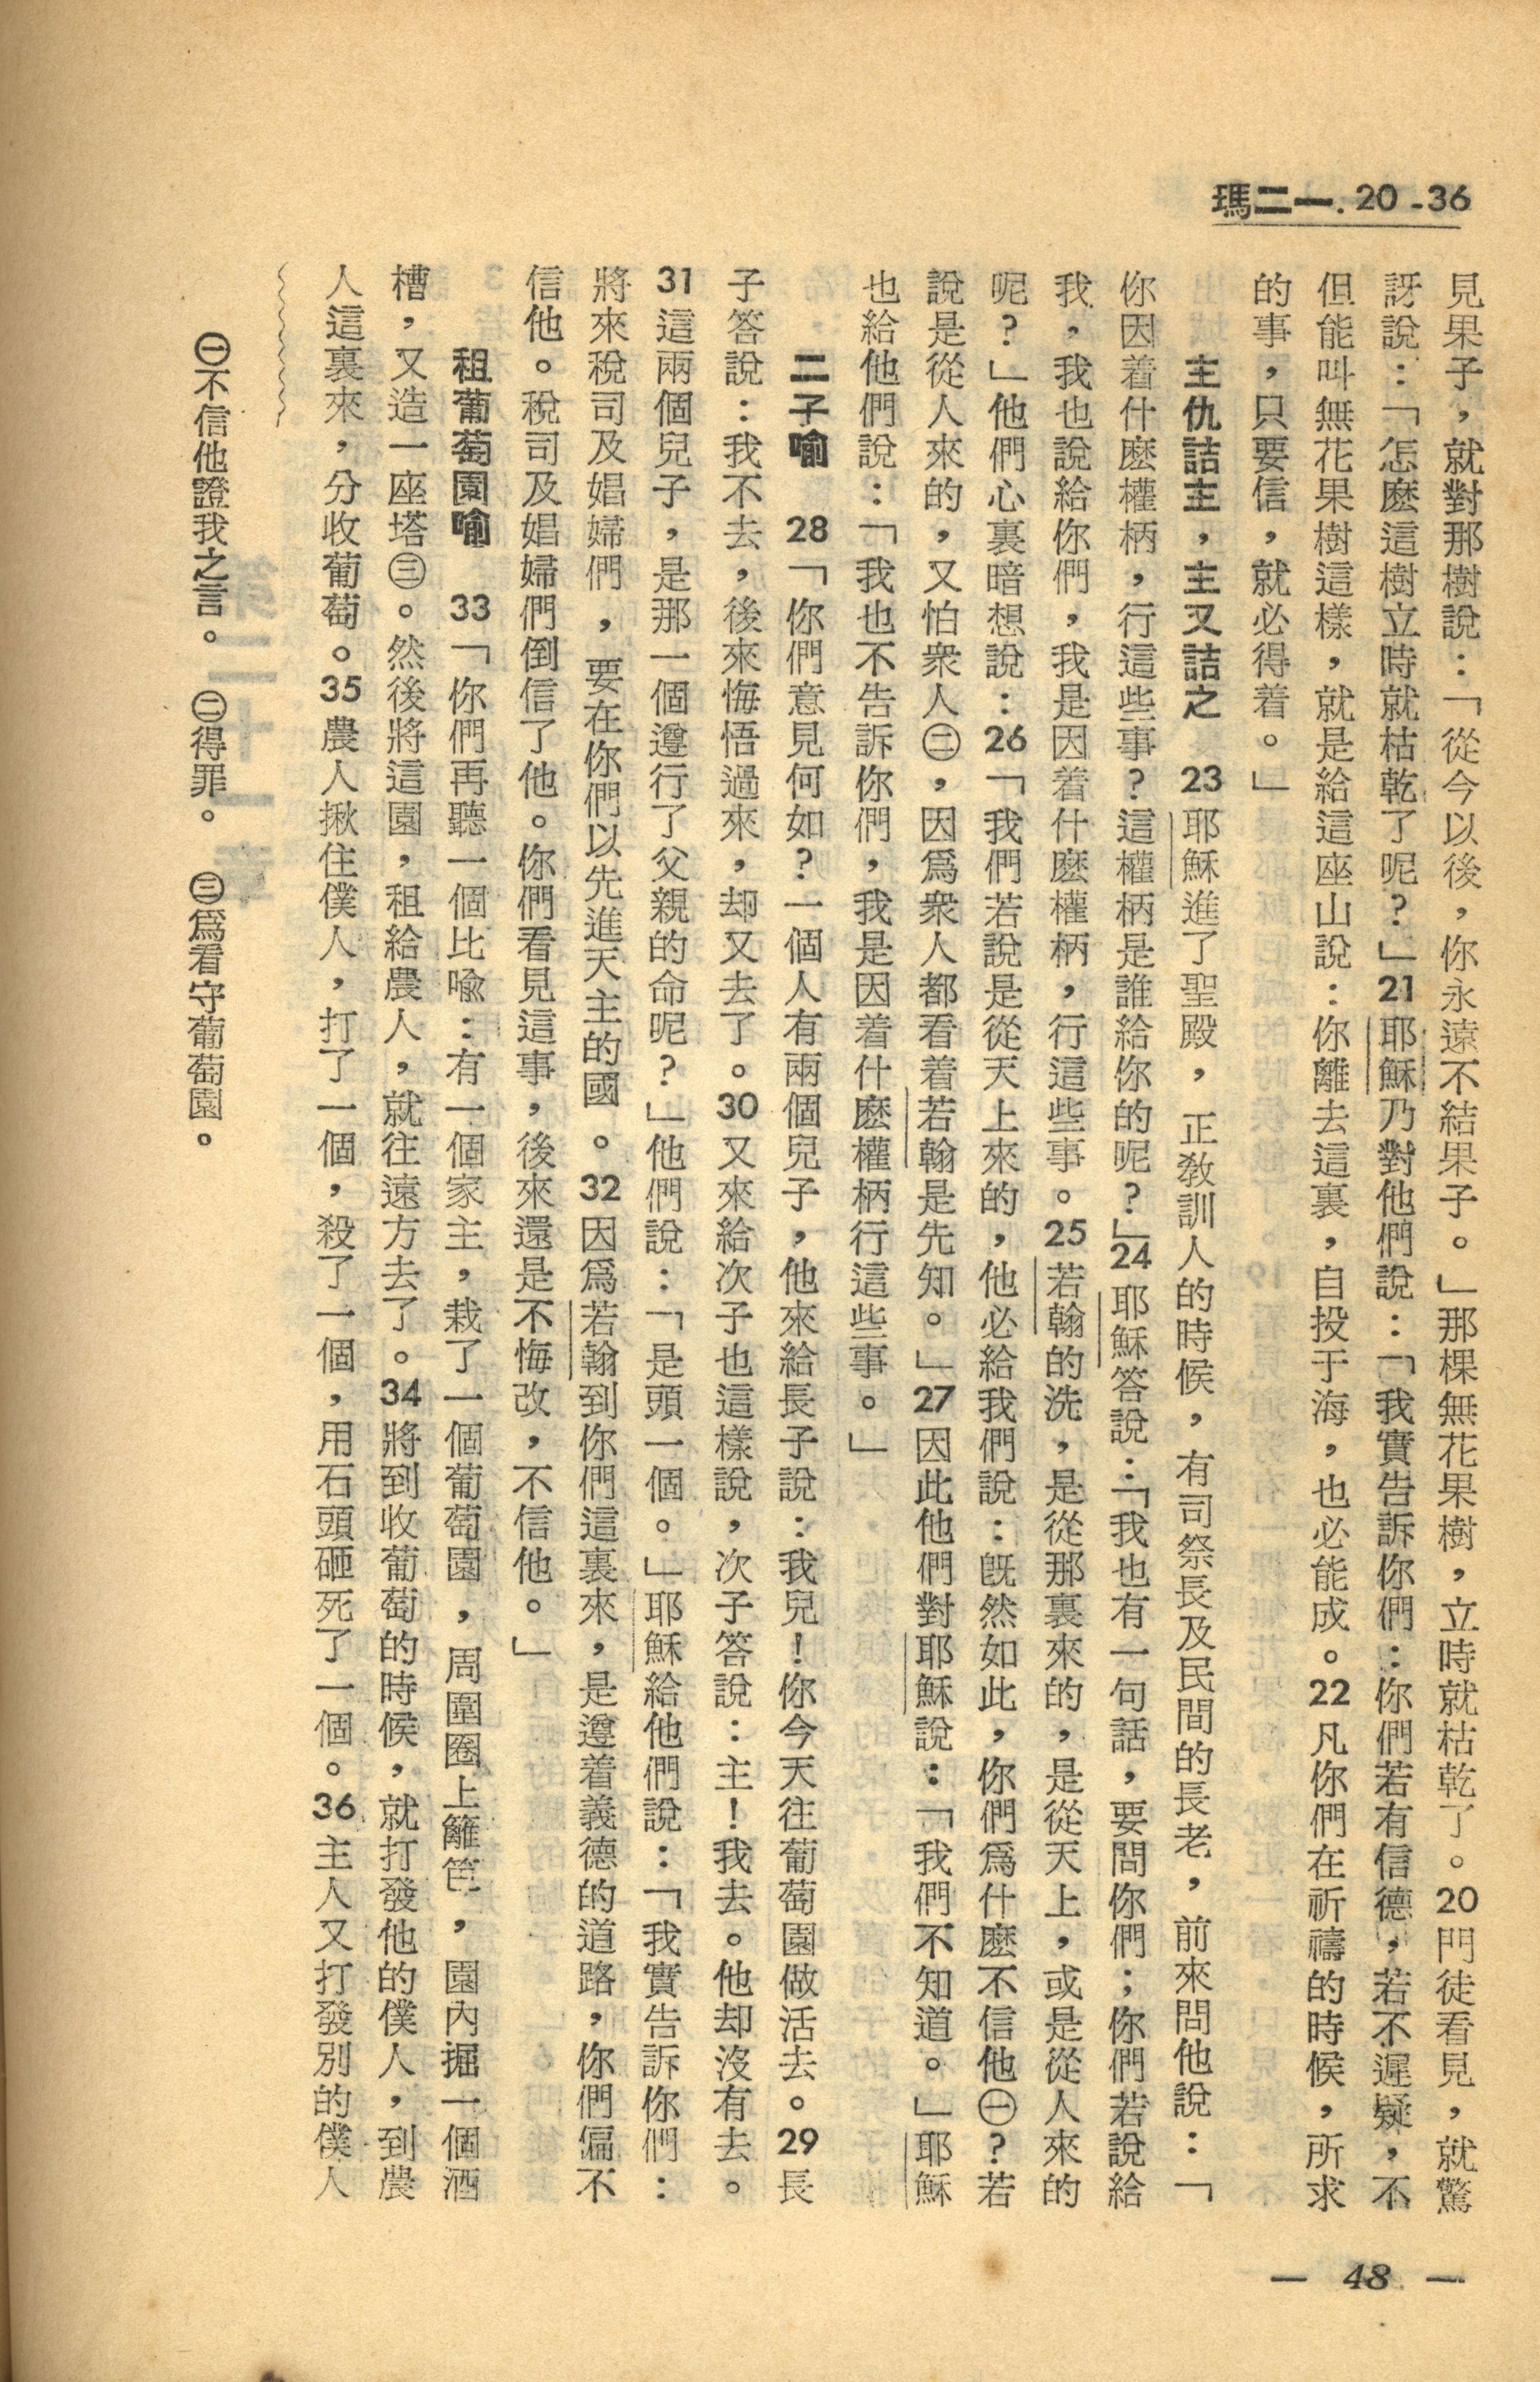 瑪二一. 20-36
見果子，就對那樹說：「從今以後，你永遠不結果子。」那棵無花果樹，立時就枯乾了。20門徒看見，就驚
訝說：「怎麽這樹立時就枯乾了呢？」21耶穌乃對他們說：「我實告訴你們：你們若有信德，若不遲疑，不
但能叫無花果樹這樣，就是給這座山說：你離去這裏，自投于海，也必能成。22凡你們在祈禱的時候，所求
的事，只要信，就必得着。」
主仇詰主，主又詰之　23耶穌進了聖殿，正敎訓人的時候，有司祭長及民間的長老，前來問他說：「
你因着什麽權柄，行這些事？這權柄是誰給你的呢？」24耶穌答說：「我也有一句話，要問你們；你們若說給
我，我也說給你們，我是因着什麽權柄，行這些事。25若翰的洗，是從那裏來的，是從天上，或是從人來的
呢？」他們心裏暗想說：26「我們若說是從天上來的，他必給我們說：旣然如此，你們爲什麽不信他㊀？若
說是從人來的，又怕衆人㊁，因爲衆人都看着若翰是先知。」27因此他們對耶穌說：「我們不知道。」耶穌
也給他們說：「我也不告訴你們，我是因着什麽權柄行這些事。」
二子喻　28「你們意見何如？一個人有兩個兒子，他來給長子說：我兒！你今天往葡萄園做活去。29長
子答說：我不去，後來悔悟過來，却又去了。30又來給次子也這樣說，次子答說：主！我去。他却沒有去。
31這兩個兒子，是那一個遵行了父親的命呢？」他們說：「是頭一個。」耶穌給他們說：「我實告訴你們：
將來稅司及娼婦們，要在你們以先進天主的國。32因爲若翰到你們這裏來，是遵着義德的道路，你們偏不
信他。稅司及娼婦們倒信了他。你們看見這事，後來還是不悔改，不信他。」
租葡萄園喻　33「你們再聽一個比喩：有一個家主，栽了一個葡萄園，周圍圈上籬笆，園內掘一個酒
槽，又造一座塔㊂。然後將這園，租給農人，就往遠方去了。34將到收葡萄的時候，就打發他的僕人，到農
人這裏來，分收葡萄。35農人揪住僕人，打了一個，殺了一個，用石頭砸死了一個。36主人又打發別的僕人
㊀不信他證我之言。　㊁得罪。　㊂爲看守葡萄園。
— 48 —